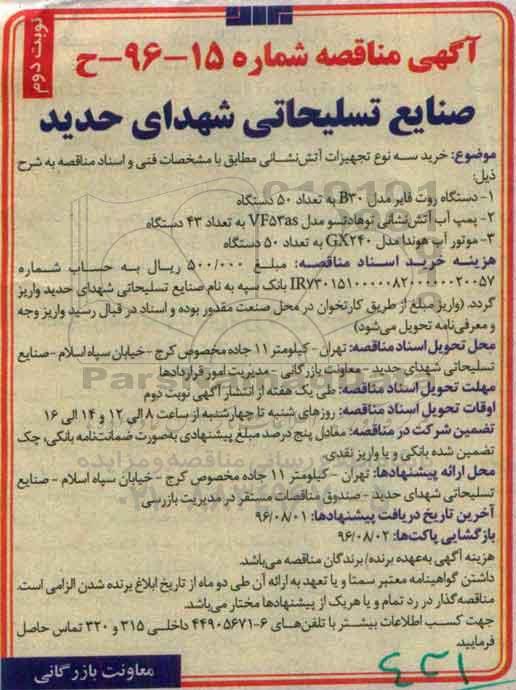 نوبت دوم
آگهی مناقصه شماره ۱۵-۹۶-ح
صنایع تسلیحاتی شهدای حدید
موضوع: خرید سه نوع تجهیزات آتش‌نشانی مطابق با مشخصات فنی و اسناد مناقصه به شرح
ذیل:
۱- دستگاه روت فایر مدل B۳۰ به تعداد ۵۰ دستگاه
۲- پمپ آب آتش‌نشانی توهادتسو مدل VF۵۳as به تعداد ۴۳ دستگاه
۳- موتور آب هوندا مدل GX۲۴۰ به تعداد ۵۰ دستگاه
هزینه خرید اسناد مناقصه: مبلغ ۵۰۰/۰۰۰ ریال به حساب شماره
بانک سپه به نام صنایع تسلیحاتی شهدای حدید واریز
گردد. (واریز مبلغ از طریق کارتخوان در محل صنعت مقدور بوده و اسناد در قبال رسید واریز وجه
و معرفی‌نامه تحویل می‌شود)
محل تحویل اسناد مناقصه: تهران - کیلومتر ۱۱ جاده مخصوص کرج - خیابان سپاه اسلام - صنایع
تسلیحاتی شهدای حدید - معاونت بازرگانی - مدیریت امور قراردادها
مهلت تحویل اسناد مناقصه: طی یک هفته از انتشار آگهی نوبت دوم
اوقات تحویل اسناد مناقصه: روزهای شنبه تا چهارشنبه از ساعت ۸ الی ۱۲ و ۱۴ الی ۱۶
تضمین شرکت در مناقصه: معادل پنج درصد مبلغ پیشنهادی به‌صورت ضمانت‌نامه بانکی، چک
تضمین شده بانکی و یا واریز نقدی.
محل ارائه پیشنهادها: تهران - کیلومتر ۱۱ جاده مخصوص کرج - خیابان سپاه اسلام - صنایع
تسلیحاتی شهدای حدید - صندوق مناقصات مستقر در مدیریت بازرسی
آخرین تاریخ دریافت پیشنهادها: ۹۶/۰۸/۰۱
بازگشایی پاکت‌ها: ۹۶/۰۸/۰۲
هزینه آگهی به‌عهده برنده/برندگان مناقصه می‌باشد.
داشتن گواهینامه معتبر سمتا و یا تعهد به ارائه آن طی دو ماه از تاریخ ابلاغ برنده شدن الزامی است.
مناقصه‌گذار در رد تمام و یا هریک از پیشنهادها مختار می‌باشد.
جهت کسب اطلاعات بیشتر با تلفن‌های ۶-۴۴۹۰۵۶۷۱ داخلی ۳۱۵ و ۳۲۰ تماس حاصل
فرمایید.
معاونت بازرگانی